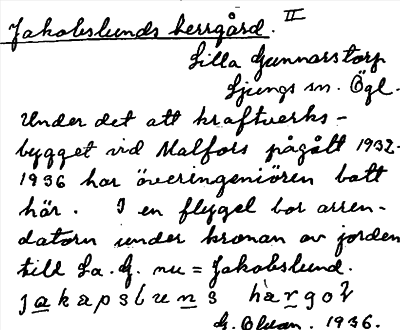 Jakobslunds herrgård. II
Lilla Gunnarstorp
Ljungs sn. Ögl.
Under det att kraftverks-
bygget vid Malfors pågått 1932-
1936 har överingeniören bott
här. I en flygel bor arren-
datorn under kronan av jorden
till La. G. nu = Jakobslund.
jakapsluns
1936.